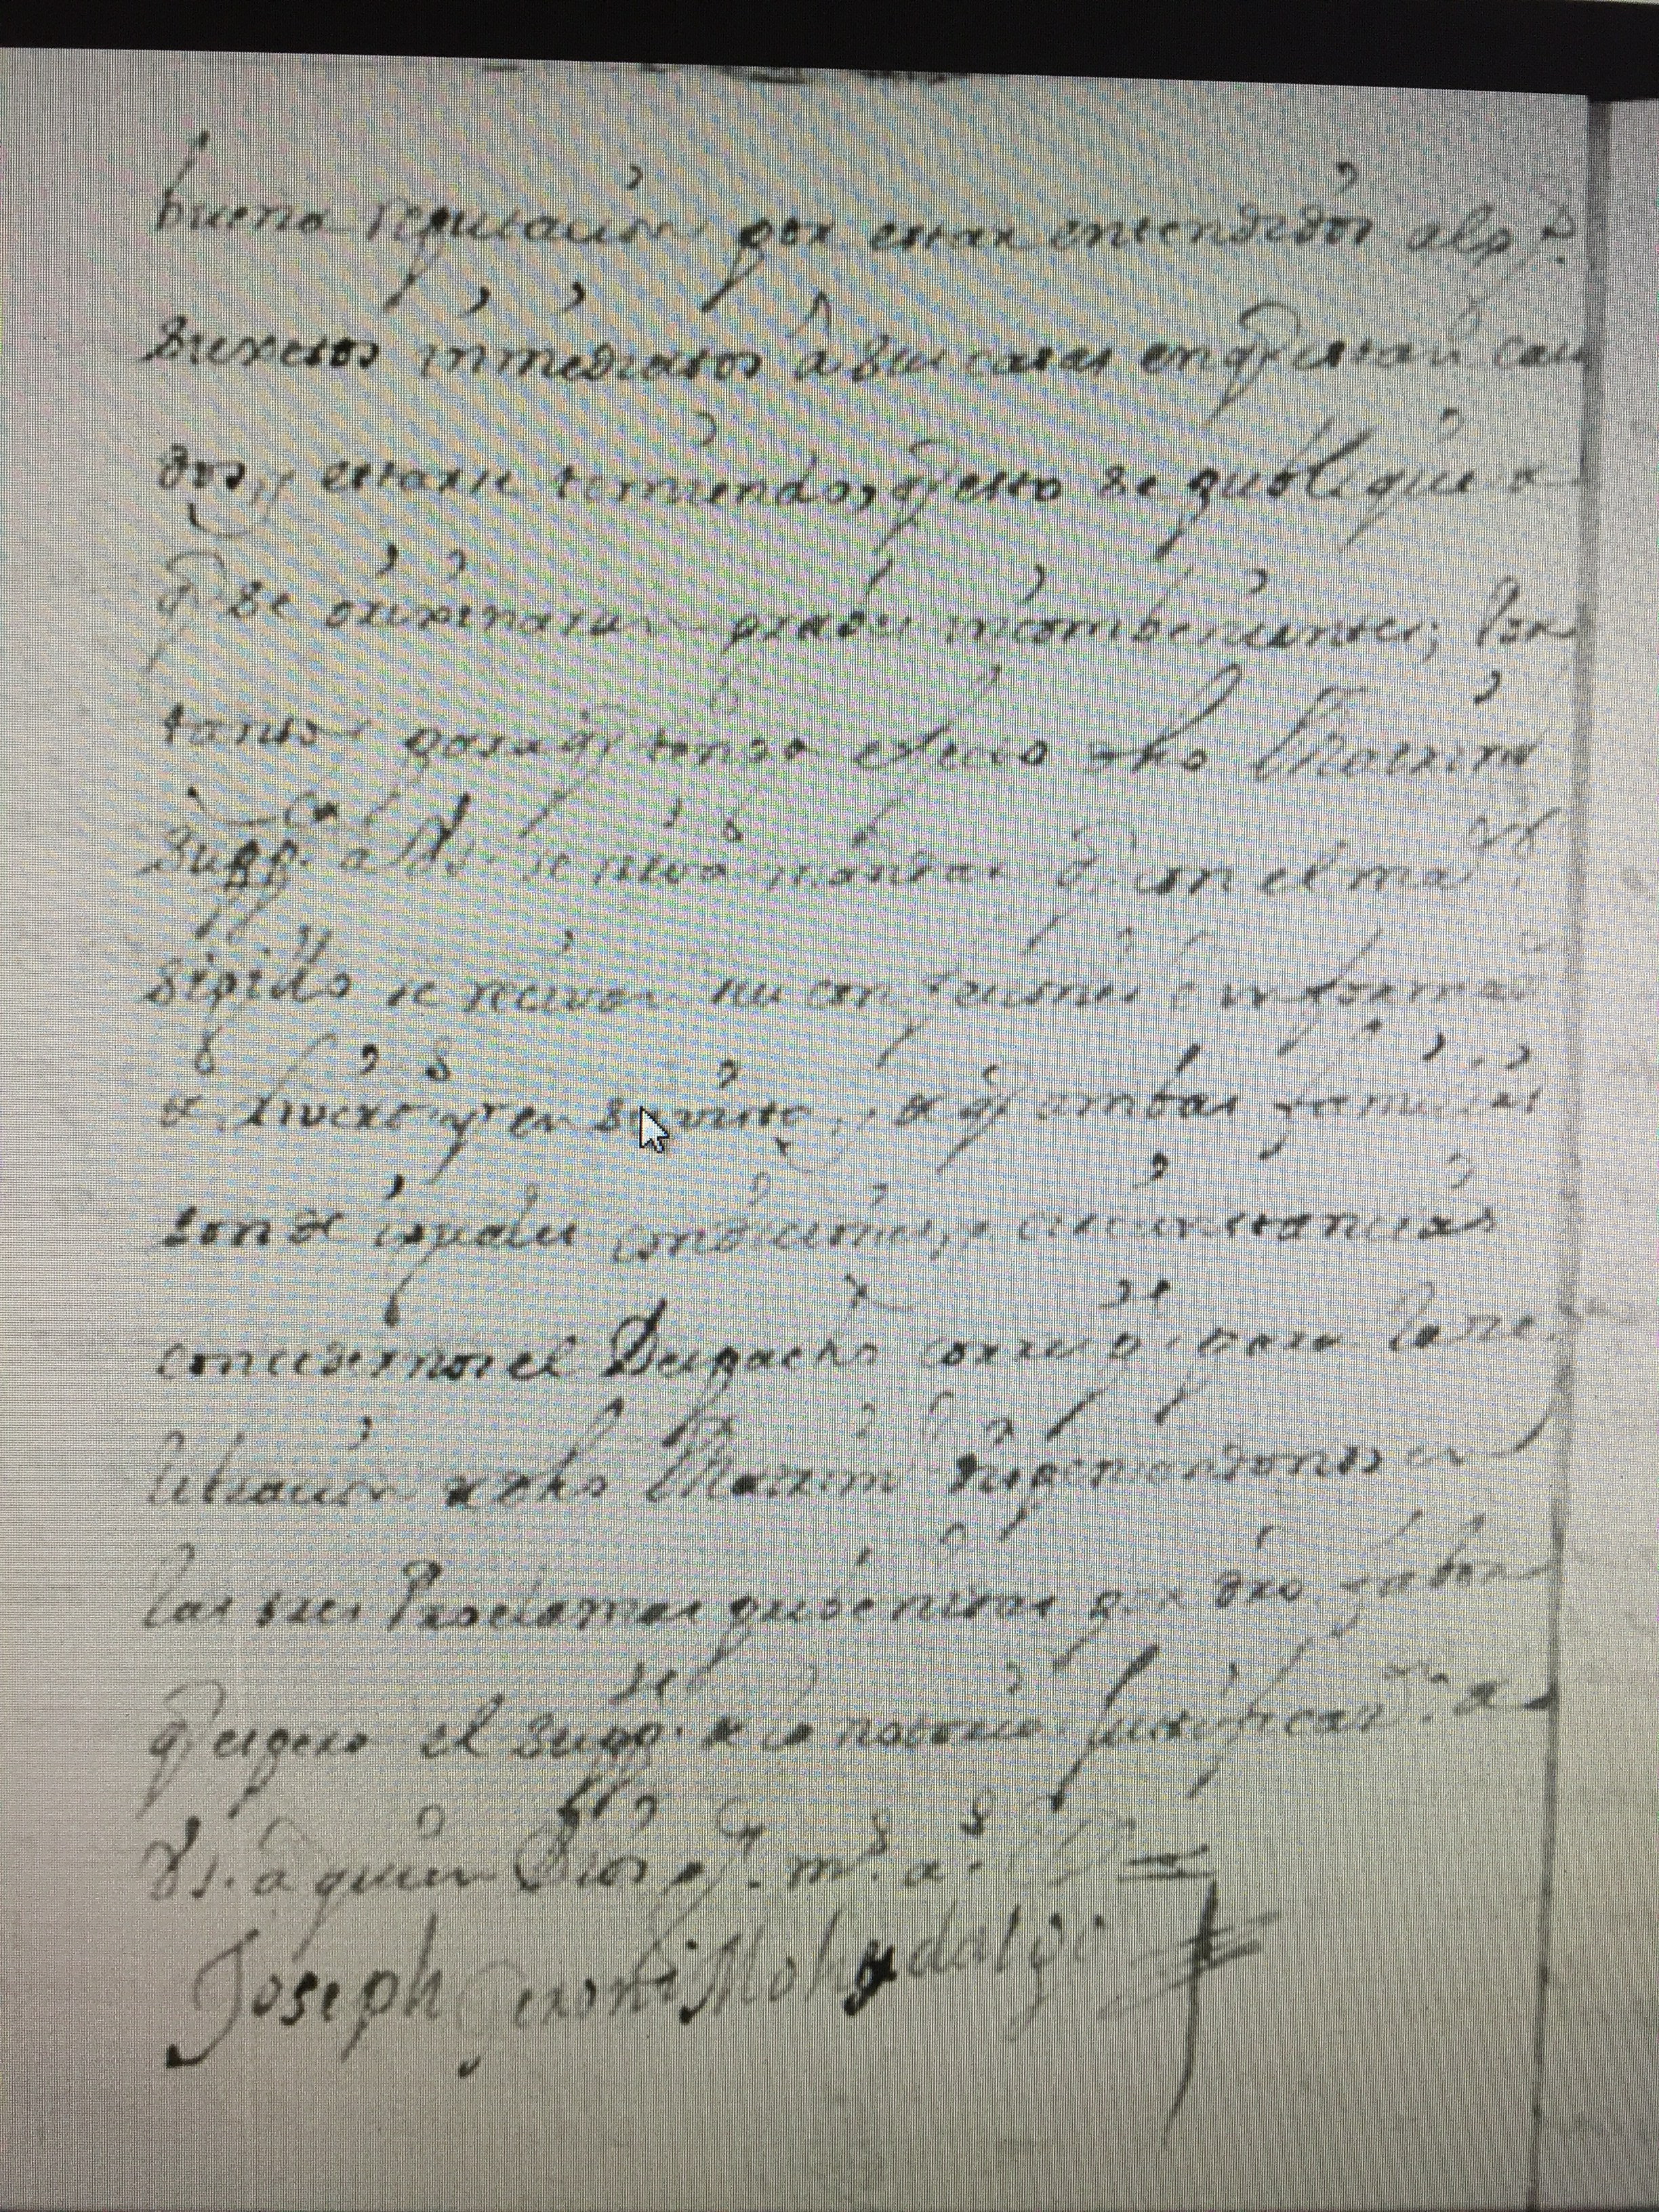 buena reputacion por estar entendidos alg.s
sugetos inmediatos â sus casas en q.e estan cau
dos, y estarse temiendo, q.e esto se publique
q.e se orixinaran graves incombenientes; Por
tanto para q.e tenga efecto dho Matrim.
Supp.ca a VS. se sirva mandar q.e con el ma.or
sigillo se recivan sus confesiones è informac
de Livertad y en su vista, de q.e ambas familias
son de iguales condiciones, y circunstancias
concedernos el Despacho correspo. para la ce
lebracion de dho Matrim dispensandonos en
las tres Proclamas prebenidas por dro fabor
q.e espera el supp.te de la notoria justificaz.on de
VS. a quien Dios g.e m.s a.s
Joseph Geroniмo hydalgo